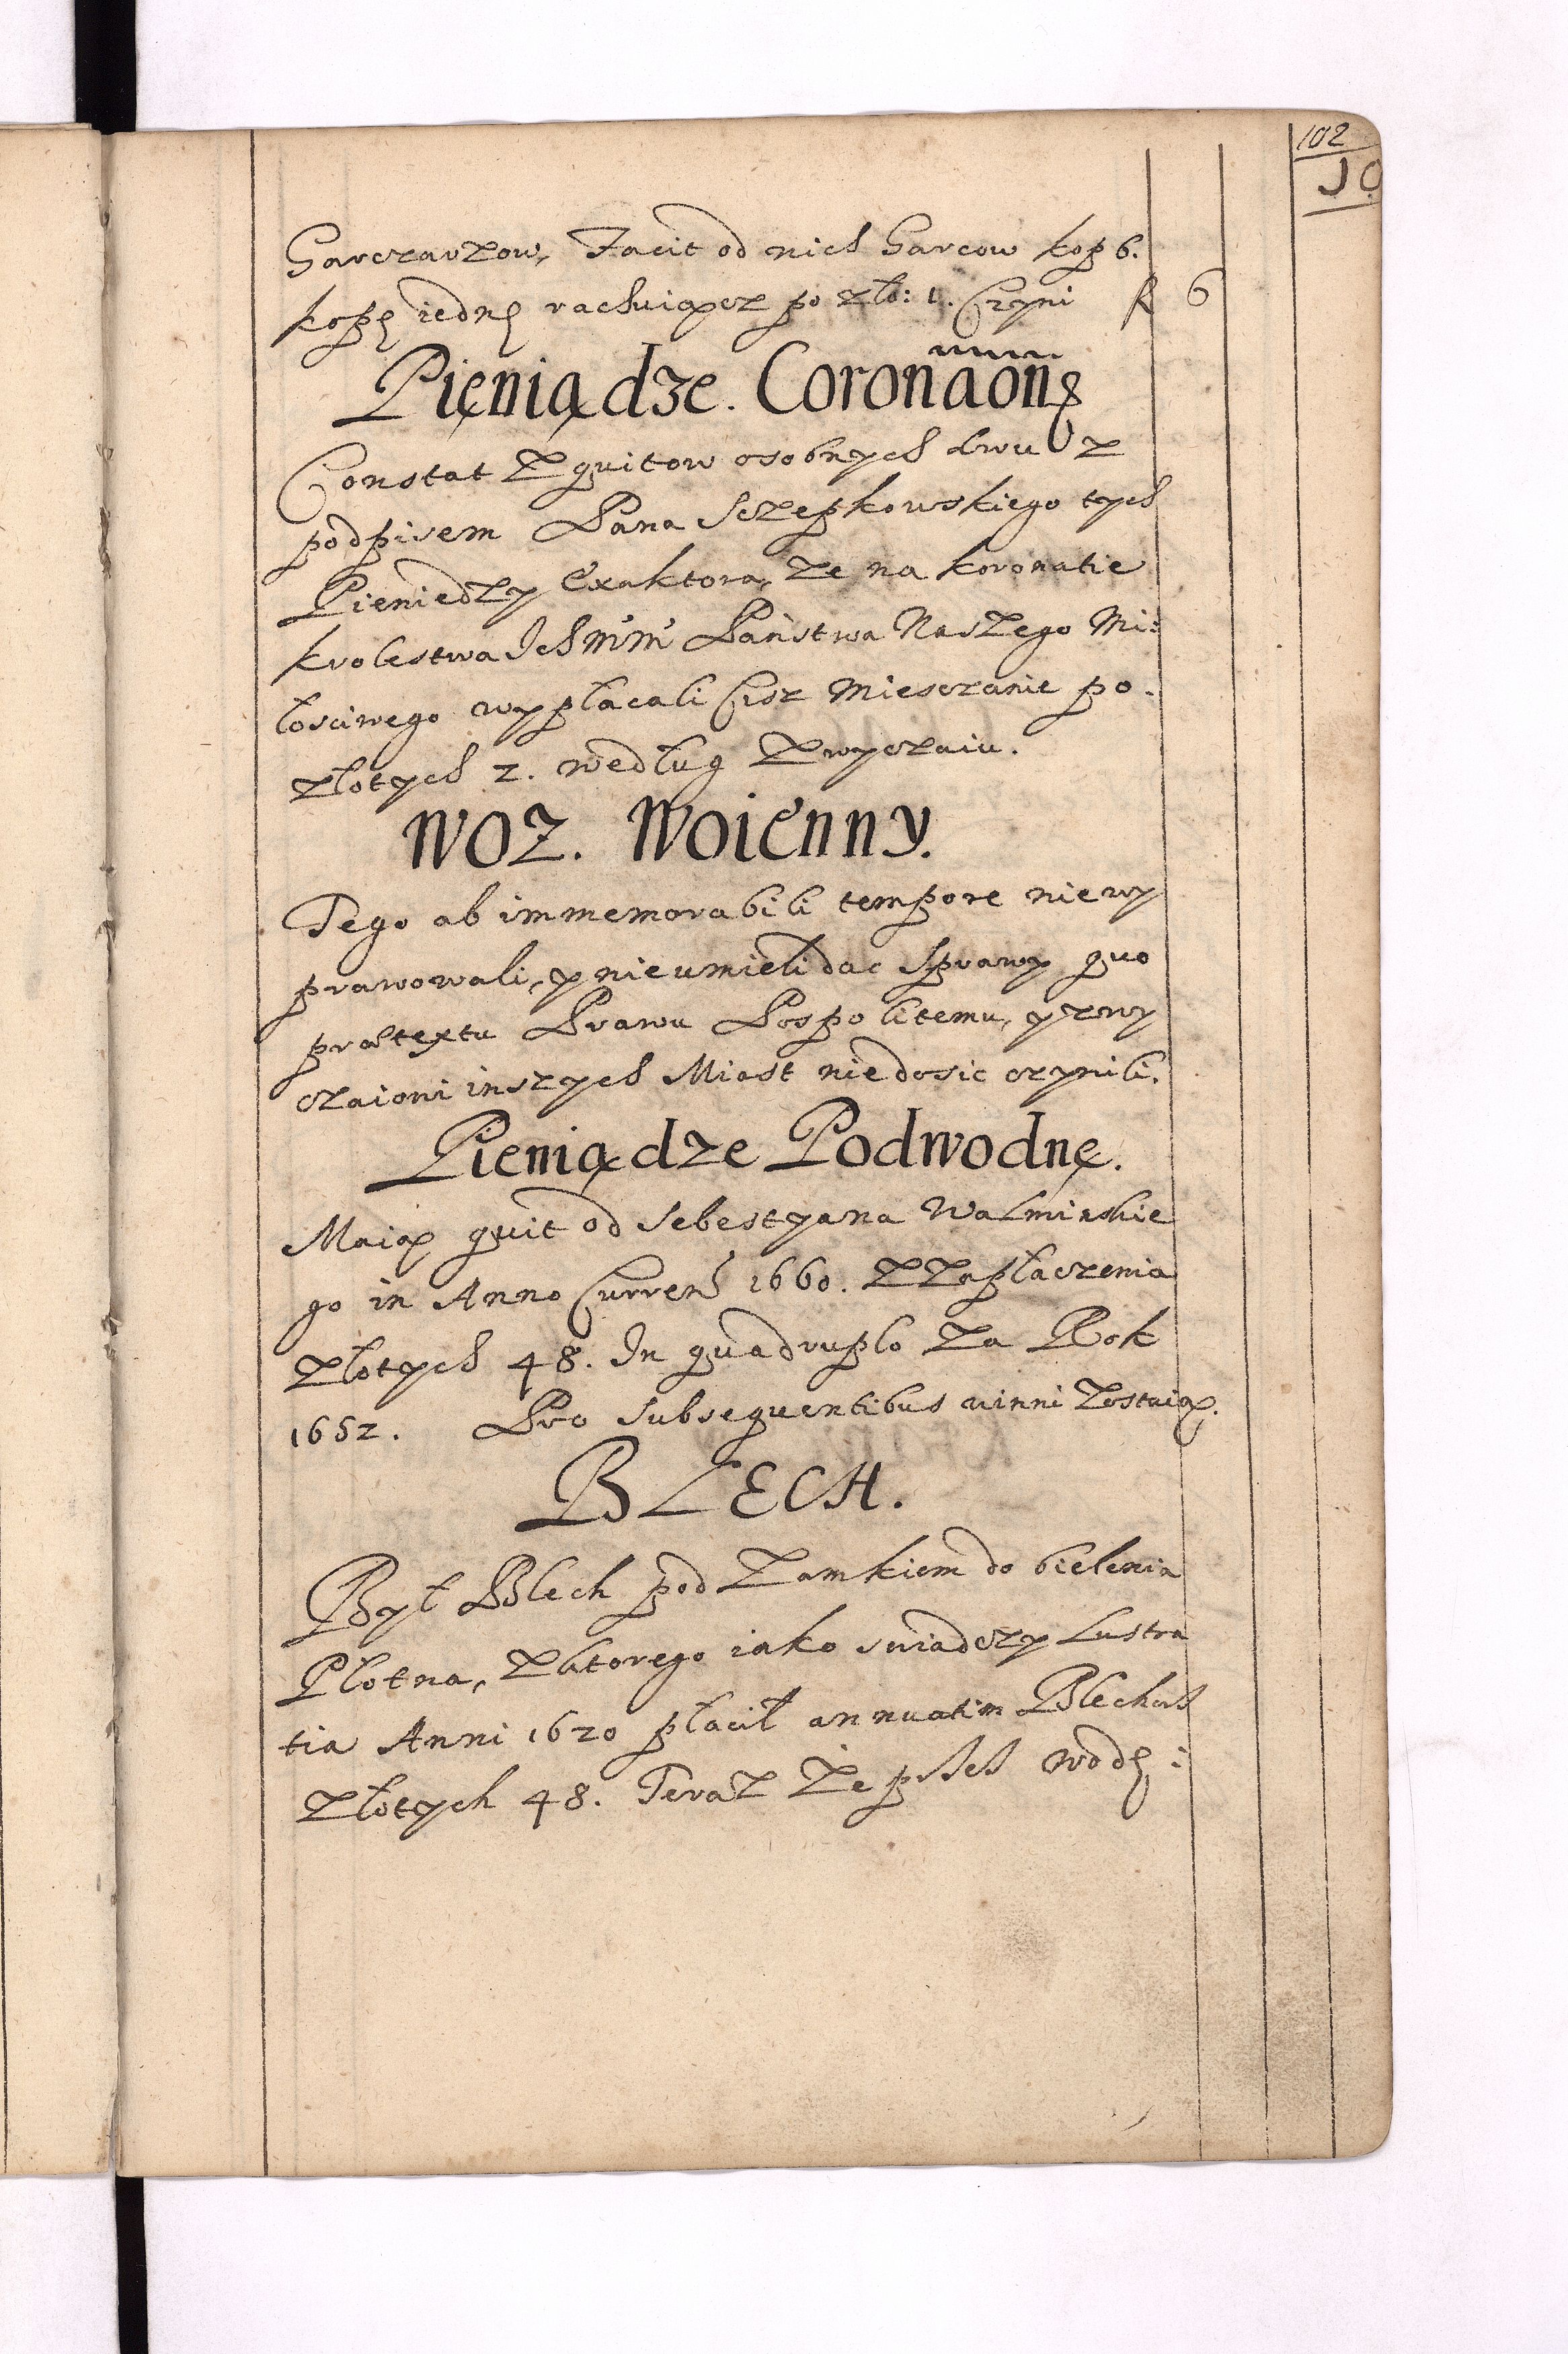 102
10
Garczarzow, Facit od nich Garcow kop 6.
kopę iednę rachuiącz po zło: 1. Czyni f 6
Pieniądze. Coronaõnę
Constat z quitow osobnych dwu z
podpisem Pana Sczepkowskiego tych
Pieniedzy Exaktora, ze na koronatie
krolestwa Ich Mm Państwa Naszego Mi:
łosciwego wypłacali Cisz Miesczanie po.
złotych 2. według zwyczaiu.
WOZ. Woienny.
Tego ab immemorabili tempore niewy
prawowali, y nieumieli dac sprawy quo
praetextu Prawu Pospolitemu, y zwy
czaiowi inszych Miast niedosic czynili.
Pieniądze Podwodnę.
Maią quit od Sebestyana Walminskie
go in Anno Curren 1660. z zapłaczenia
złotych 48. In quadruplo za Rok
1652. Pro subsequentibus winni zostaią.
BLECH.
Był Blech pod Zamkiem do bielenia
Płotna, z ktorego iako swiadczy Lustra
tia Anni 1620 płacił annuatim Blecharz
złotych 48. Teraz ze przez wodę: